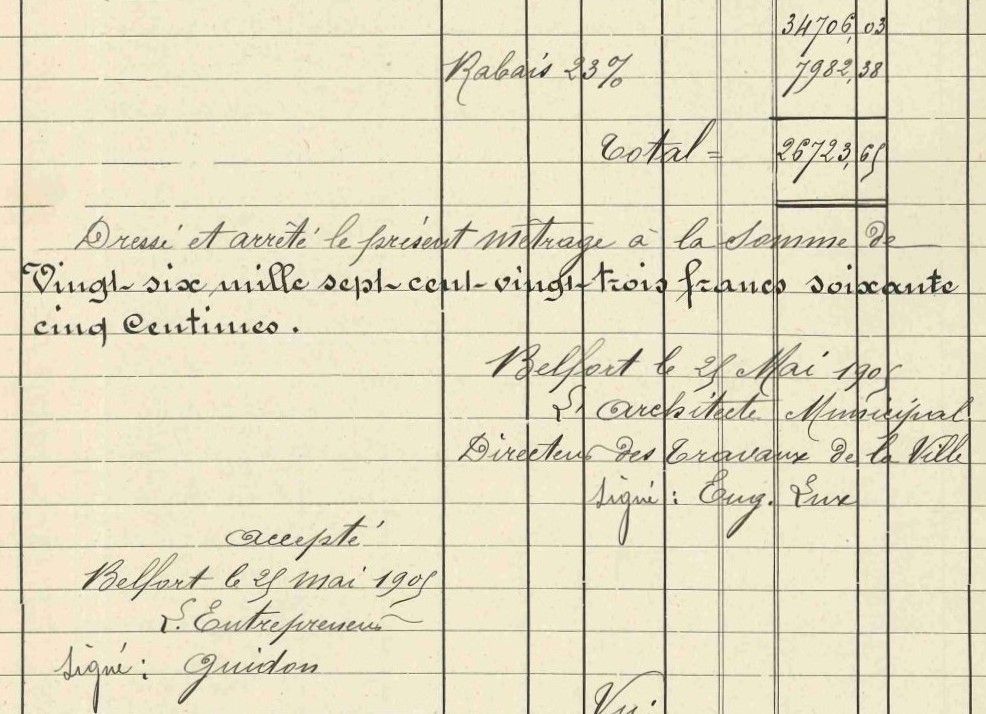 34706,03
Rabais 23% 7982,38
Total = 26723,65
Dressé et arrêté le présent métrage à la somme de
Vingt-six mille sept-cent-vingt-trois francs soixante
cinq Centimes.
Belfort le 25 Mai 1905
L'architecte Municipal
Directeur des Travaux de la Ville
signé : Eug. Lux
accepté
Belfort le 25 mai 1905
L'Entrepreneur
signé : Guidon
Vu :